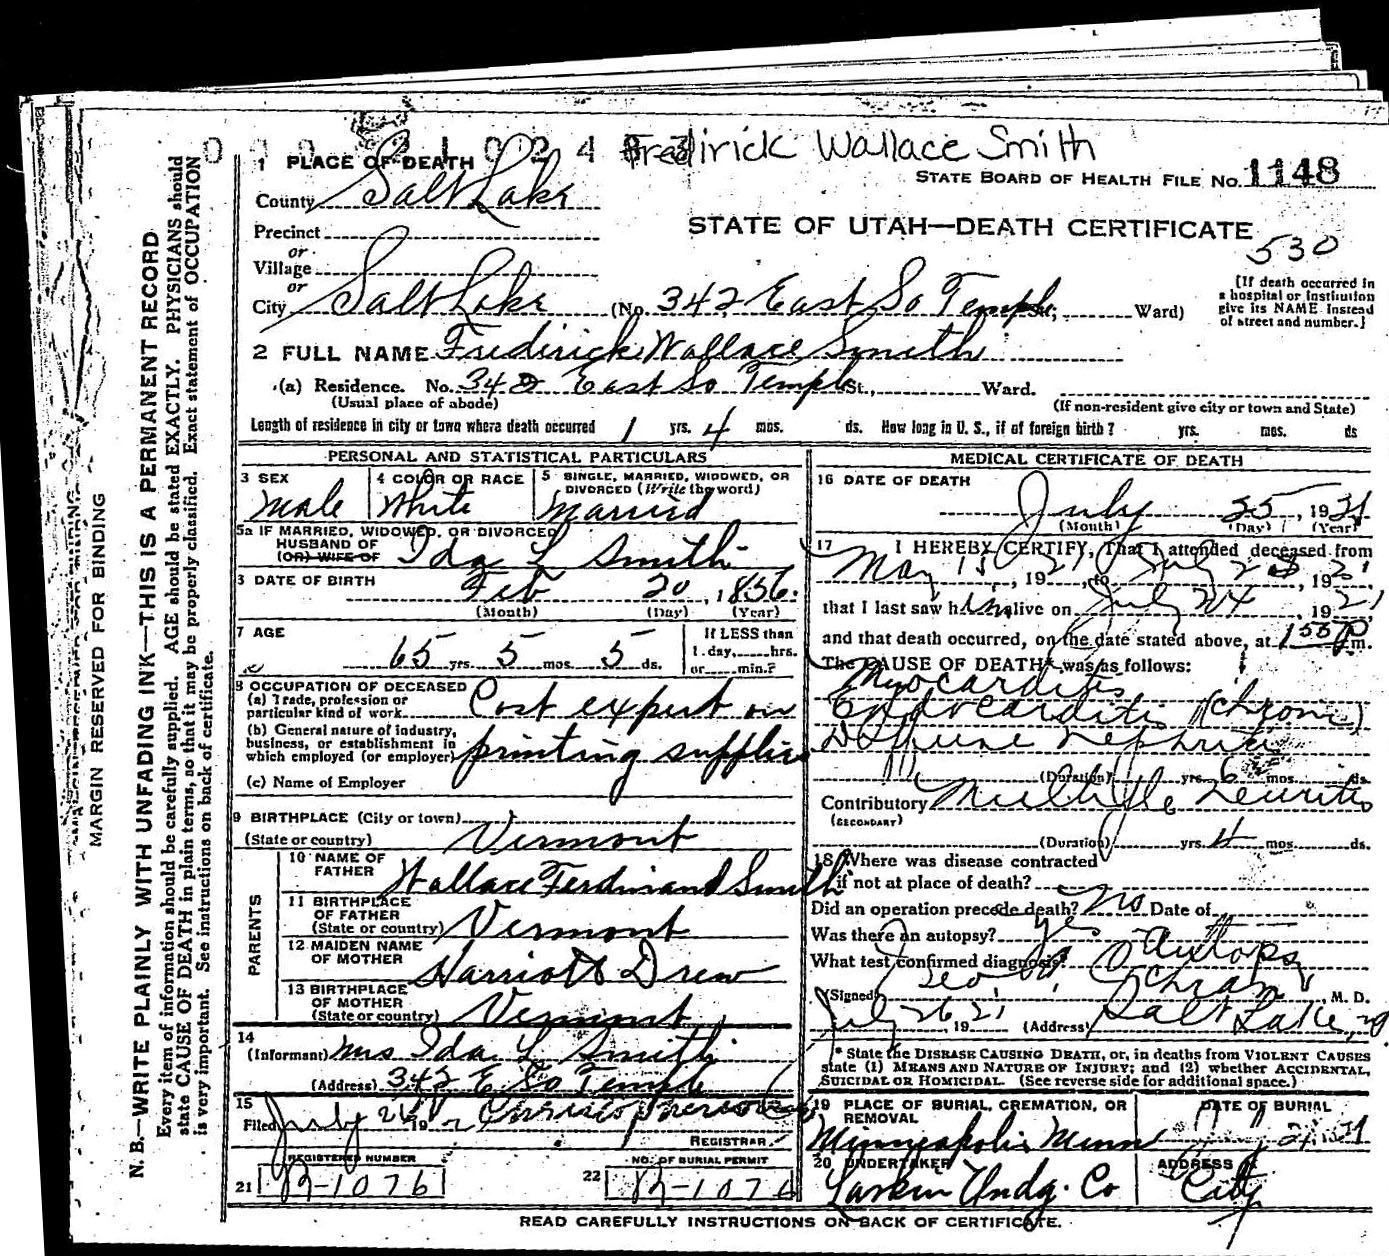 Fredirick Wallace Smith
STATE BOARD OF HEALTH FILE NO. 1148
1 PLACE OF DEATH
County Salt Lake
STATE OF UTAH—DEATH CERTIFICATE
530
Precinct
or
Village
or
City Salt Lake (No. 342 East So Temple St; Ward)
[If death occurred in
a hospital or institution
give its NAME instead
of street and number.]
2 FULL NAME Fredirick Wallace Smith
(a) Residence. No. 342 East So Temple St., Ward.
(Usual place of abode) (If non-resident give city or town and State)
Length of residence in city or town where death occurred 1 yrs. 4 mos. ds. How long in U. S., if of foreign birth? yrs. mos. ds
PERSONAL AND STATISTICAL PARTICULARS
3 SEX 4 COLOR OR RACE 5 SINGLE, MARRIED, WIDOWED, OR
DIVORCED (Write the word)
Male White Married
5a IF MARRIED, WIDOWED, OR DIVORCED
HUSBAND OF
(OR) WIFE OF Ida L Smith
3 DATE OF BIRTH Feb 20, 1856.
(Month) (Day) (Year)
7 AGE If LESS than
65 yrs. 5 mos. 5 ds. 1 day, hrs.
or min.?
8 OCCUPATION OF DECEASED
(a) Trade, profession or
particular kind of work Cost expert on
(b) General nature of industry,
business, or establishment in
which employed (or employer) printing supplies
(c) Name of Employer
9 BIRTHPLACE (City or town)
(State or country) Vermont
PARENTS
10 NAME OF
FATHER Wallace Ferdinand Smith
11 BIRTHPLACE
OF FATHER
(State or country) Vermont
12 MAIDEN NAME
OF MOTHER Harriott Drew
13 BIRTHPLACE
OF MOTHER
(State or country) Vermont
14
(Informant) Mrs Ida L Smith
(Address) 342 E So Temple
15
Filed July 26 19
REGISTRAR
REGISTERED NUMBER NO. OF BURIAL PERMIT
21 B-1076 22 B-1076
MEDICAL CERTIFICATE OF DEATH
16 DATE OF DEATH
July 25, 1921
(Month) (Day) (Year)
17 I HEREBY CERTIFY, That I attended deceased from
May 15, 1921, to July 25, 1921,
that I last saw him alive on July 24, 1921
and that death occurred, on the date stated above, at 1 55 P m.
The CAUSE OF DEATH* was as follows:
Myocarditis
Endocarditis (chronic)
(Duration) yrs. 6 mos. ds.
Contributory Multiple Neuritis
(SECONDARY)
(Duration) yrs. 4 mos. ds.
18 Where was disease contracted
if not at place of death?
Did an operation precede death? No Date of
Was there an autopsy? yes
What test confirmed diagnosis? Autopsy
(Signed) M. D.
July 26 21, 19 (Address) Salt Lake
* State the DISEASE CAUSING DEATH, or, in deaths from VIOLENT CAUSES
state (1) MEANS AND NATURE OF INJURY; and (2) whether ACCIDENTAL,
SUICIDAL OR HOMICIDAL. (See reverse side for additional space.)
19 PLACE OF BURIAL, CREMATION, OR
REMOVAL DATE OF BURIAL
Minneapolis Minn
20 UNDERTAKER ADDRESS
Larkin Undg. Co City
READ CAREFULLY INSTRUCTIONS ON BACK OF CERTIFICATE.
MARGIN RESERVED FOR BINDING
N. B.—WRITE PLAINLY WITH UNFADING INK—THIS IS A PERMANENT RECORD
Every item of information should be carefully supplied. AGE should be stated EXACTLY. PHYSICIANS should
state CAUSE OF DEATH in plain terms, so that it may be properly classified. Exact statement of OCCUPATION
is very important. See instructions on back of certificate.